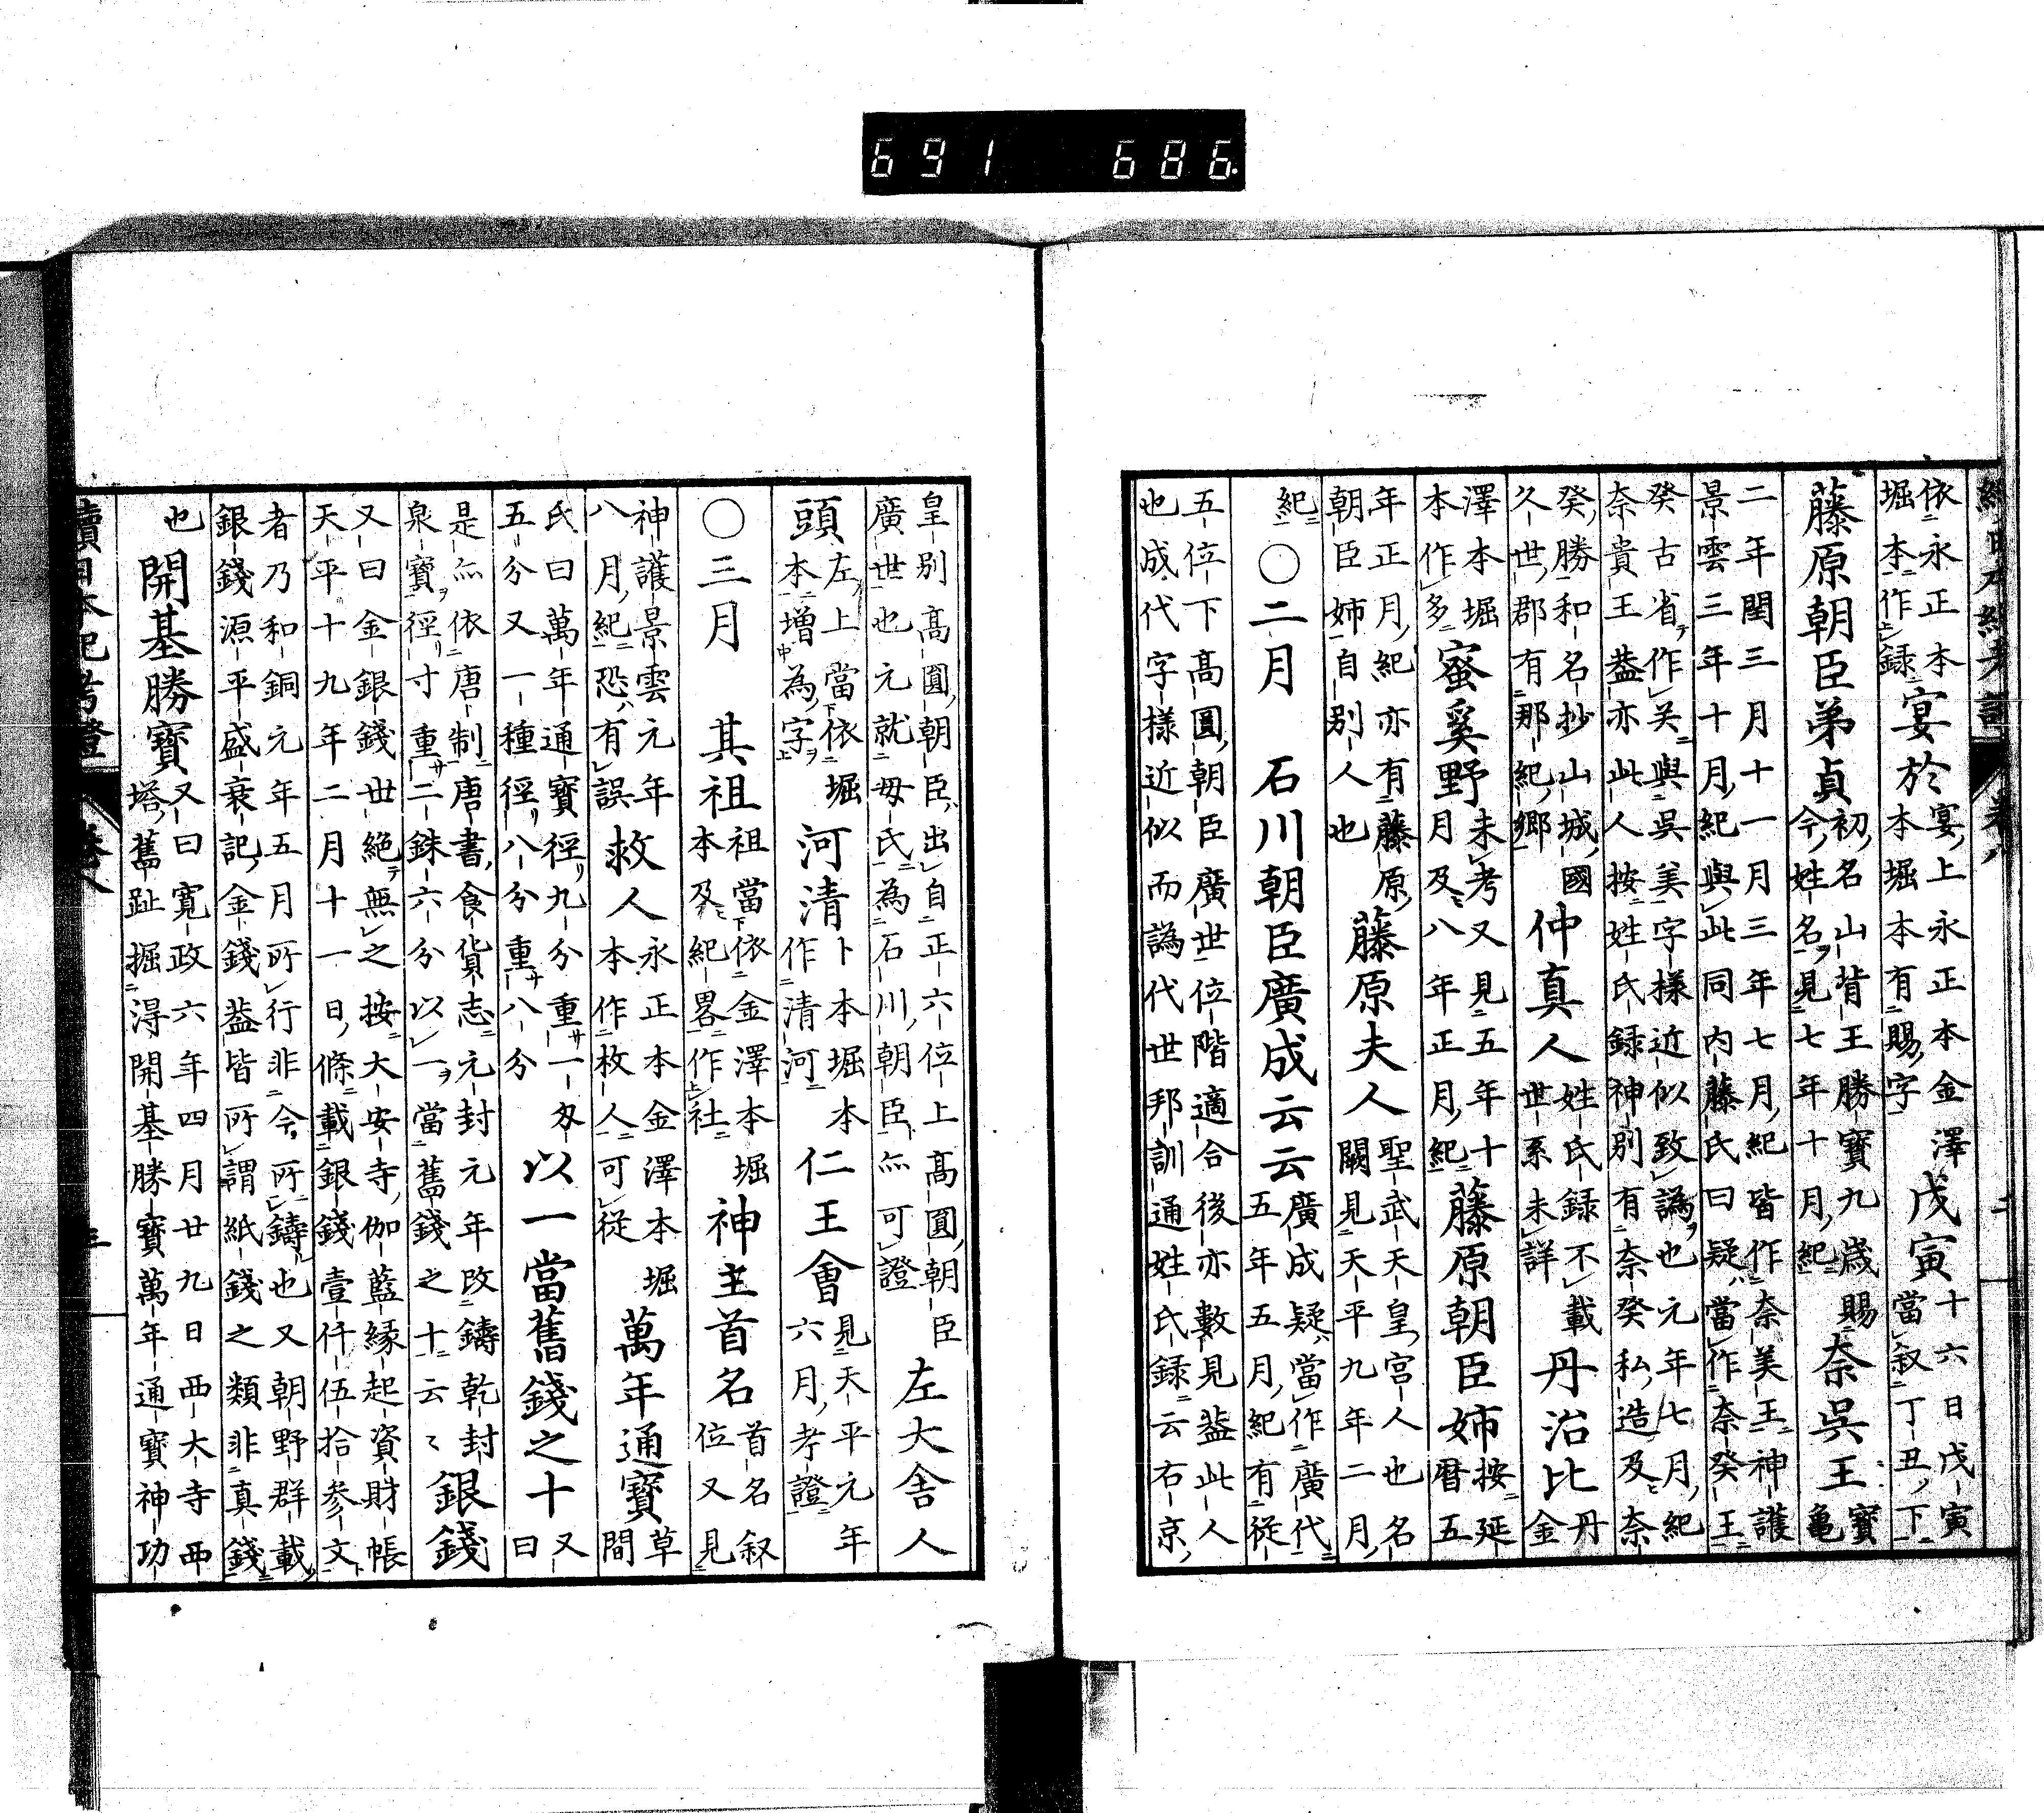 691 686
續日本紀考證 卷八 二
依永正本金澤
堀本作録
宴於
宴上永正本金澤
本堀本有賜字
戊寅
十六日戊寅
當叙丁丑下
藤原朝臣弟貞
初名山背王勝寶九歳賜
今姓名見七年十月紀
奈呉王
寶
龜
二年閏三月十一月三年七月紀皆作奈美王神護
景雲三年十月紀與此同内藤氏曰疑當作奈癸王
癸古省作关與呉美字様近似致譌也元年七月紀
奈貴王葢亦此人按姓氏録神別有奈癸私造及奈
癸勝和名抄山城國
久世郡有那紀郷
仲真人
姓氏録不載
世系未詳
丹治比
丹
金
澤本堀
本作多
蜜奚野
未考又見五年十
月及八年正月紀
藤原朝臣姉
按延
暦五
年正月紀亦有藤原
朝臣姉自別人也
藤原夫人
聖武天皇宮人也名
闕見天平九年二月
紀
〇二月
石川朝臣廣成云云
廣成疑當作廣代
五年五月紀有從
五位下高圓朝臣廣世位階適合後亦數見葢此人
也成代字様近似而譌代世邦訓通姓氏録云右京
皇別高圓朝臣出自正六位上高圓朝臣
廣世也元就母氏為石川朝臣亦可證
左大舍人
頭
左上當依堀
本増為字
河清
卜本堀本
作清河
仁王會
見天平元年
六月考證
〇三月
其祖
祖當依金澤本堀
本及紀畧作社
神主首名
首名叙
位又見
神護景雲元年
八月紀恐有誤
救人
永正本金澤本堀
本作枚人可從
萬年通寶
草
間
氏曰萬年通寶徑九分重一匁
五分又一種徑八分重八分
以一當舊錢之十
又
曰
是亦依唐制唐書食貨志元封元年改鑄乾封
泉寶徑寸重二銖六分以一當舊錢之十云〻
銀錢
又曰金銀錢世絶無之按大安寺伽藍縁起資財帳
天平十九年二月十一日條載銀錢壹仟伍拾參文
者乃和銅元年五月所行非今所鑄也又朝野群載
銀錢源平盛衰記金錢葢皆所謂紙錢之類非真錢
也
開基勝寶
又曰寛政六年四月廿九日西大寺西
塔舊趾掘得開基勝寶萬年通寶神功
續日本紀考證 卷八 三